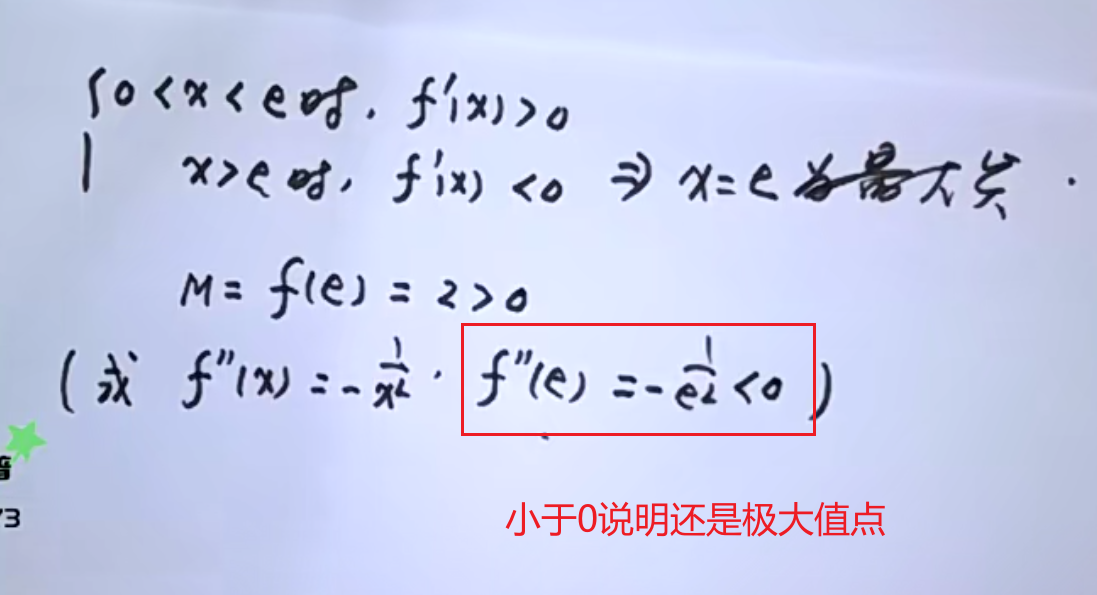 { 0 < x < e 时, f'(x) > 0
x > e 时, f'(x) < 0 ⇒ x = e 为最大点.
M = f(e) = 2 > 0
(或 f''(x) = -1/x². f''(e) = -1/e² < 0)
小于0说明还是极大值点
73